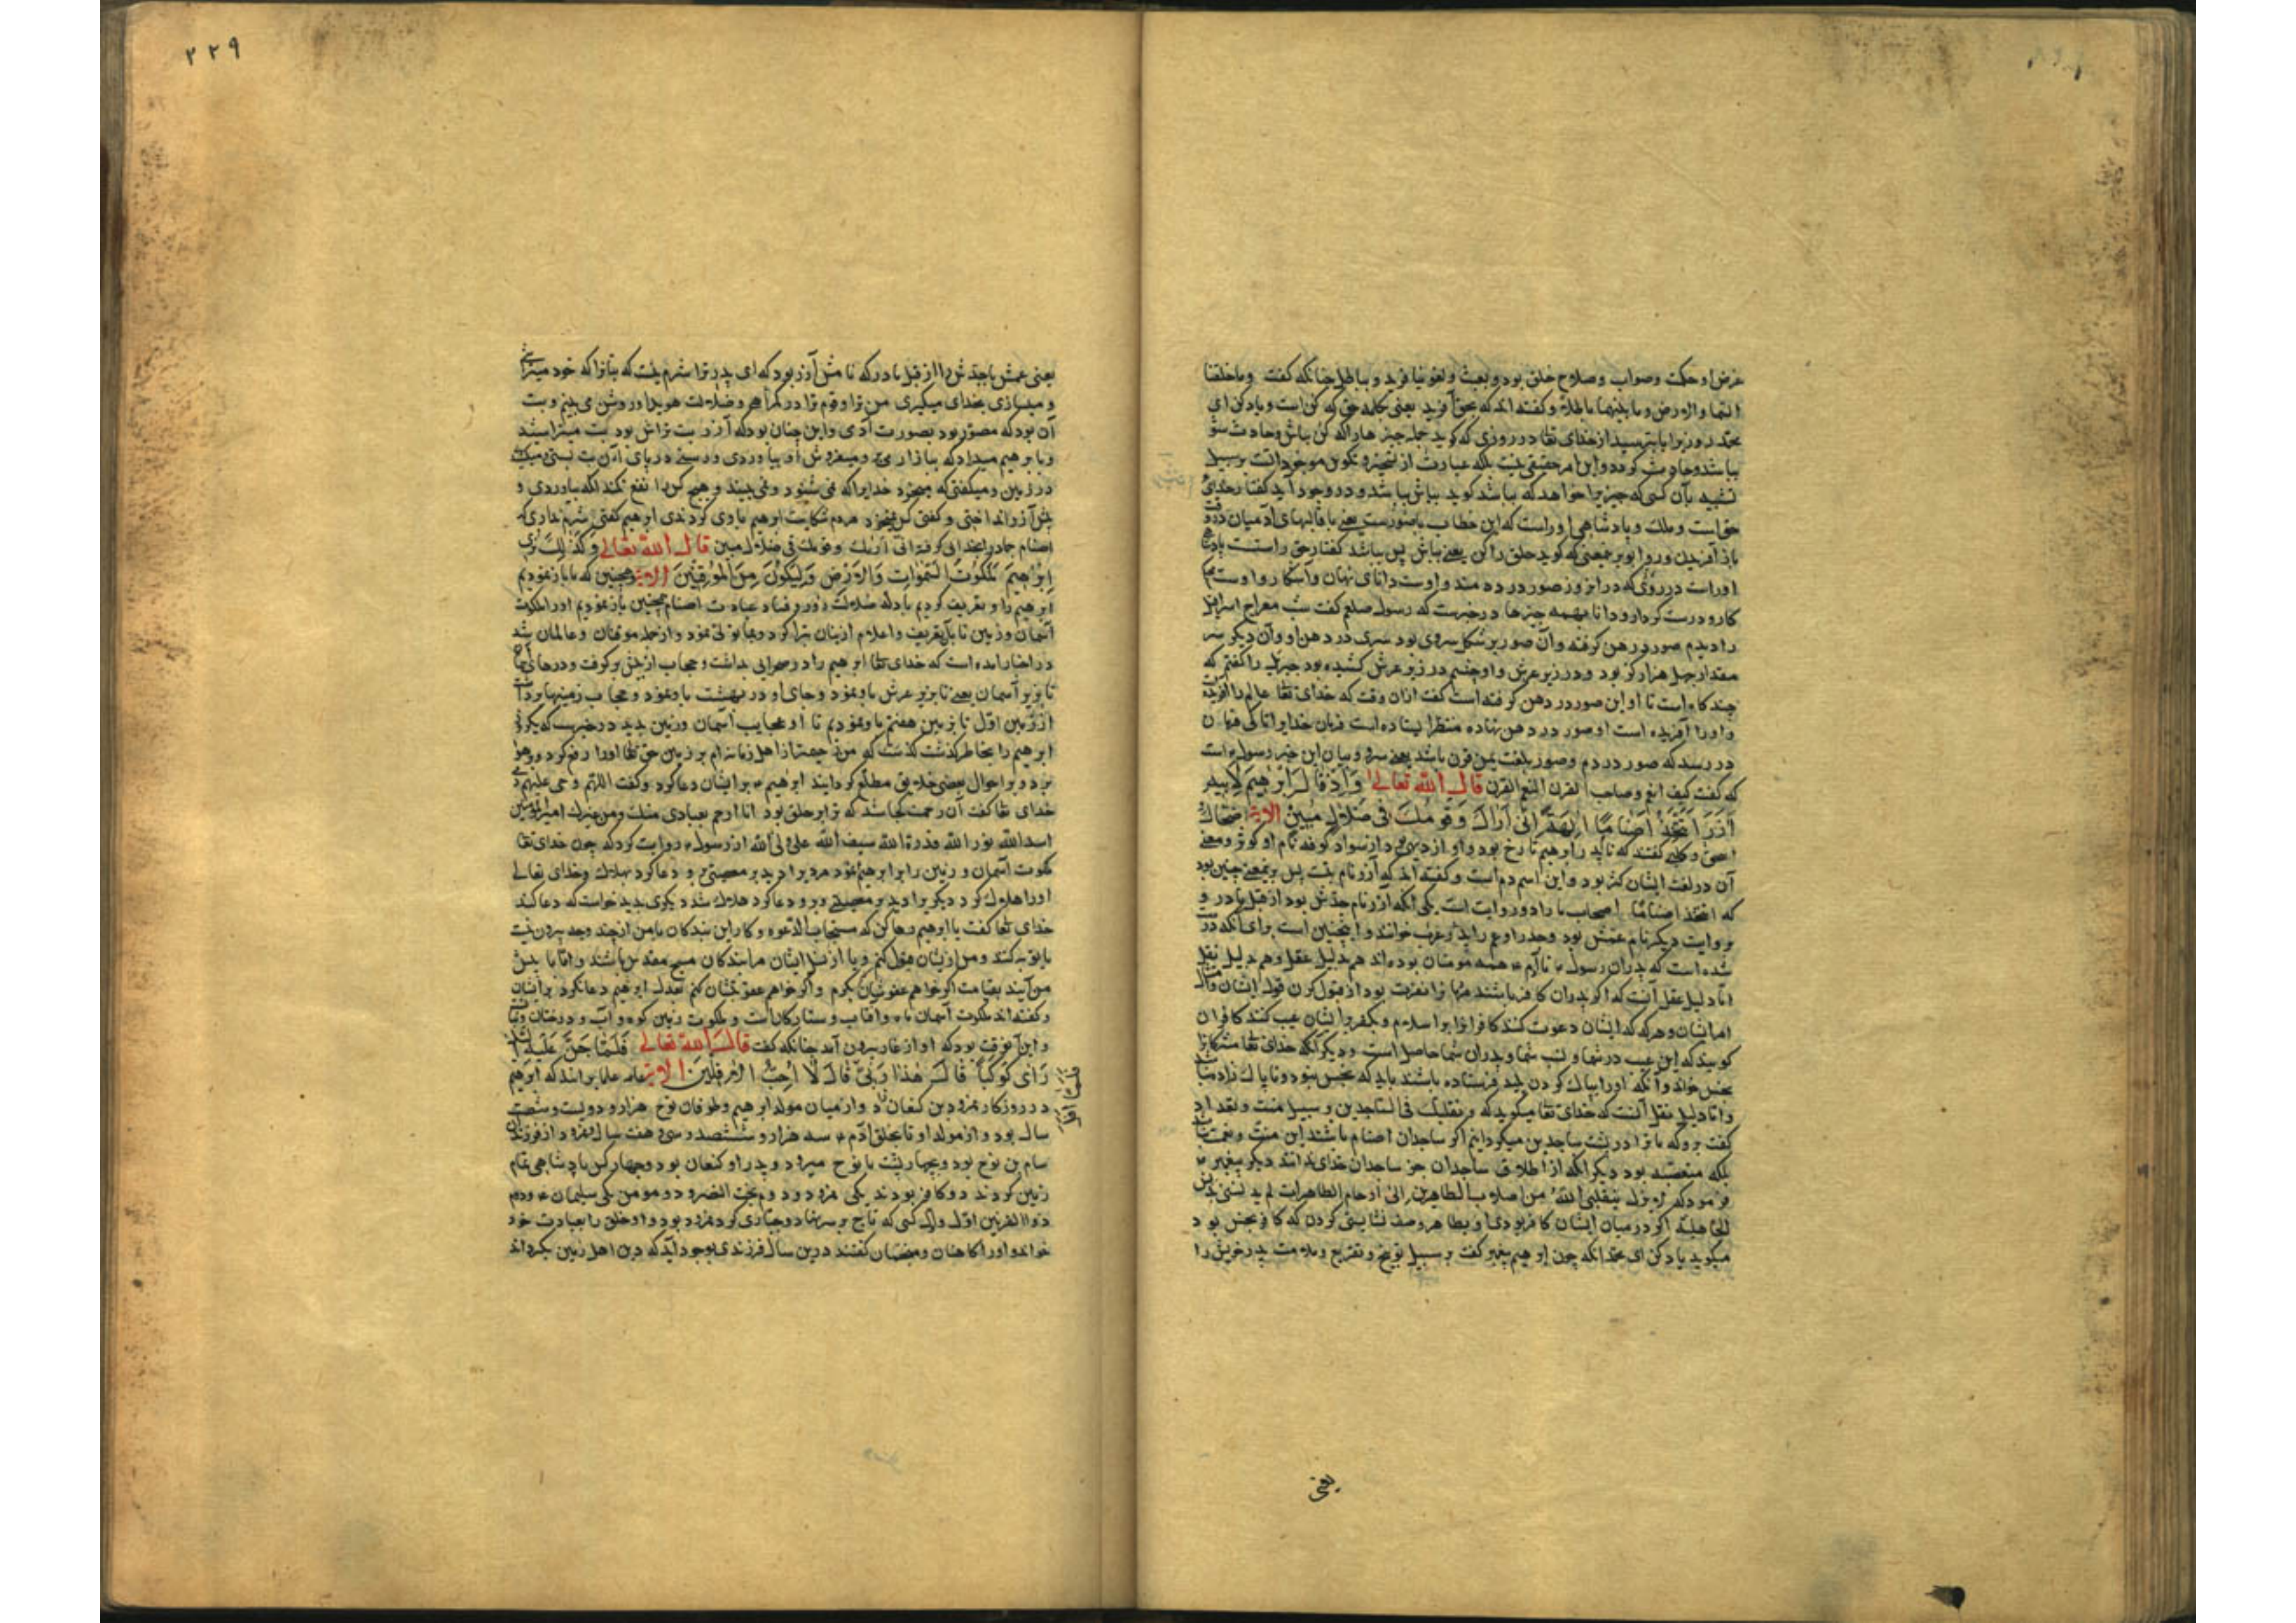 غرض او حکمت و صواب و صلاح خلق بود و بعبث و لغو نیافرید و بباطل چنانکه گفت وما خلقنا
السما والارض وما بینهما باطلا و گفته اند که بحق آفرید یعنی کلمه حق که کن است و یاد کن ای
محمد روزیرا یا بترسید از خدای تعا در روزی که گوید جمله چیزها را که کن بباش و حادث شو
بباشد و حادث گردد و این امر حقیقی نیست بلکه عبارت از تسخیر و تکوین موجوداتست بر سبیل
تشبیه بآن کسی که چیزیرا خواهد که بباشد گوید بباش بباشد و در وجود آید گفتار خدای
حق است و ملک و پادشاهی اوراست که این خطاب باصورتست یعنی با قالبهای آدمیان
باز آفریدن و روا بود بمعنی که گوید خلق را کن یعنی بباش پس بباشد گفتار حق راست
اوراست در روزی که در آنروز صور در دمند و اوست دانای نهان و آشکارا و اوست
کار و درست کردار و دانا بهمه چیزها در خبرست که رسول صلعم گفت شب معراج اسرافیل
را دیدم صور در دهن گرفته و آن صور بر شکل سروی بود سری در دهن او و آن دیگر سر
مقدار چهل هزار گز بود و در زیر عرش و او چشم در زیر عرش کشیده بود جبریل را گفتم که
چند گاه است تا او این صور در دهن گرفته است گفت ازان وقت که خدای تعا عالم را آفریده
و اورا آفریده است او صور در دهن نهاده منتظر ایستاده است فرمان خدایرا تا کی فرمان
در رسد که صور در دم و صور بلغت یمن قرن باشد یعنی سرو و بیان این خبر رسولست
که گفت کیف انعم وصاحب القرن التقم القرن قال الله تعالی وَاِذْ قَالَ اِبْرٰهیمُ لِاَبیهِ
آزَرَ اَتَتَّخِذُ اَصْنَامًا اٰلِهَةً اِنّی اَرٰاكَ وَقَوْمَكَ فی ضَلالٍ مُبینٍ الایة ضحاک
و کلبی گفتند که نام پدر ابرهیم تارخ بود و او از دیهی بود از سواد کوفه نام او کوثی و معنی
آن در لغت ایشان کژ بود و این اسم ذم است و گفته اند که آزر نام بت پس بر معنی چنین بود
که اتتخذ اصناما اصحاب ما را دو روایت است یکی آنکه آزر نام جدش بود از قبل مادر و
بروایت دیگر نام عمش بود و جد را و عم را پدر عرب خوانند و اینچنین است برای آنکه
شده است که پدران رسول تا آدم همه مؤمنان بوده اند هم بدلیل عقل و هم بدلیل نقل
اما دلیل عقل آنست که اگر پدران کافر باشند مردمانرا نفرت بود از قبول کردن قول ایشان
و هرگه که ایشان دعوت کنند کافرانرا بر اسلام و بکفر بر ایشان عیب کنند کافران
گویند که این عیب در شما و نسب شما و پدران شما حاصل است و دیگر آنکه خدای تعا مشرکانرا
نجس خواند و آنکه اورا بپاک کردن پلید فرستاده باشند باید که نجس نبود و ناپاک زاده
و اما دلیل نقل آنست که خدای تعا میگوید که و تقلبک فی الساجدین بر سبیل منت و لقد
گفت بر وکه ما ترا در پشت ساجدین میگردانیم اگر ساجدان اصنام باشند این منت و نعمت
بلکه منقصت بود دیگر آنکه از اطلاق ساجدان جز ساجدان خدای ندانند دیگر پیغمبر
فرمود که لم یزل ینقلنی الله من اصلاب الطاهرین الی ارحام الطاهرات لم یدنسنی بدنس
الجاهلیة اگر در میان ایشان کافر بودی او بطاهر وصف نشایستی کردن که کافر نجس بود
میگوید یاد کن ای محمد آنکه چون ابرهیم پیغمبر گفت بر سبیل توبیخ و تقریع و ملامت پدر خویش را
یعنی
٢٢٩
یعنی عمش یا جدش را از قبل مادر که نامش آزر بود که ای پدر ترا شرم نیست که بتانرا که خود
و میسازی بخدای میگیری من ترا و قوم ترا در گمراهی و ضلالت هویدا و روشن می بینم و بت
آن بود که مصور بود بصورت آدمی و این چنان بود که آزر بت تراش بود بت میتراشید
و بابرهیم میداد که ببازار بر و میفروش او بیاوردی و رسنی در پای آن بت بستی و میکشیدی
در زمین و میگفتی که میخرد خدایرا که نمی شنود و نمی بیند و هیچ کس را نفع نکند آنگه بیاوردی و
پیش آزر انداختی و گفتی کس نمیخرد مردم شکایت ابرهیم با وی کردندی ابرهیم گفتی شرم نداری که
اصنام جماد را بخدایی گرفته انی اراک وقومک فی ضلال مبین قال الله تعالی وَكَذٰلِكَ نُری
اِبْرٰهیمَ مَلَكُوتَ السَّمٰوَاتِ وَالْاَرْضِ وَلِیَكُونَ مِنَ الْمُوقِنینَ الایة همچنین که ما باز نمودیم
ابرهیم را و تعریف کردیم بادله ضلالت و فساد عبادت اصنام همچنین باز نمودیم اورا ملکوت
آسمان و زمین تا بآن تعریف و اعلام ازیشان تبرا کرد و بما تولی نمود و از جمله موقنان و عالمان شد
در اخبار آمده است که خدای تعا ابرهیم را در صحرایی بداشت و حجاب از پیش برگرفت و درها
تا بزیر آسمان یعنی تا بزیر عرش باو نمود و جای او در بهشت باو نمود و حجاب زمینها
از زمین اول تا بزمین هفتم باو نمودیم تا او عجایب آسمان و زمین بدید در خبرست که یکروز
ابرهیم را بخاطر گذشت که من رحیمتر از اهل زمانه ام بر زمین حق تعا اورا رفع کرد در هوا
برد و بر احوال بعضی خلایق مطلع گردانید ابرهیم بر ایشان دعا کرد و گفت اللهم دمر علیهم
خدای تعا گفت آن رحمت کجا شد که ترا بر خلق بود انا ارحم بعبادی منک ومن غیرک امیرالمؤمنین
اسدالله نورالله قدرة الله سیف الله علی ولی الله از رسول روایت کرد که چون خدای تعا
ملکوت آسمان و زمین را بر ابرهیم نمود مردیرا دید بر معصیتی برو دعا کرد بهلاک و خدای تعالی
اورا هلاک کرد دیگریرا دید بر معصیتی و برو دعا کرد هلاک شد دیگری بدید خواست که دعا کند
خدای تعا گفت یا ابرهیم رها کن که مستجاب الدعوه و کار این بندگان با من از چند وجه بیرون نیست
یا توبه کنند و من ازیشان قبول کنم و یا از نسل ایشان مرا بندگان مسبح مقدس باشند و اما با پیش
من آیند بقیامت اگر خواهم عفوشان بکرم و اگر خواهم عقوبتشان کنم بعدل ابرهیم دعا نکرد بر ایشان
و گفته اند ملکوت آسمان ماه و آفتاب و ستارگانست و ملکوت زمین کوه و آب و درختان
و این آنوقت بود که او از غار بیرون آمد چنانکه گفت قال الله تعالی فَلَمّٰا جَنَّ عَلَیْهِ
رَاٰی كَوْكَبًا قَالَ هٰذَا رَبّی قَالَ لَا اُحِبُّ الْاٰفِلینَ الایة عامه علما بر آنند که ابرهیم
در روزگار نمرود بن کنعان زاد و از میان مولد ابرهیم و طوفان نوح هزار و دویست و شصت
سال بود و از مولد او تا بخلق آدم سه هزار و ششصد و سی و هفت سال و نمرود از فرزندان
سام بن نوح بود و بچهار پشت با نوح میرود و پدر او کنعان بود و چهار کس پادشاهی تمام
زمین کردند دو کافر بودند یکی نمرود دوم بخت النصر و دو مومن یکی سلیمان دوم
ذواالقرنین اول و آن کسی که تاج بر سر نهاد و جباری کرد نمرود بود و او خلق را بعبادت خود
خواند و اورا کاهنان و منجمان گفتند درین سال فرزندی بوجود آید که دین اهل زمین بگرداند